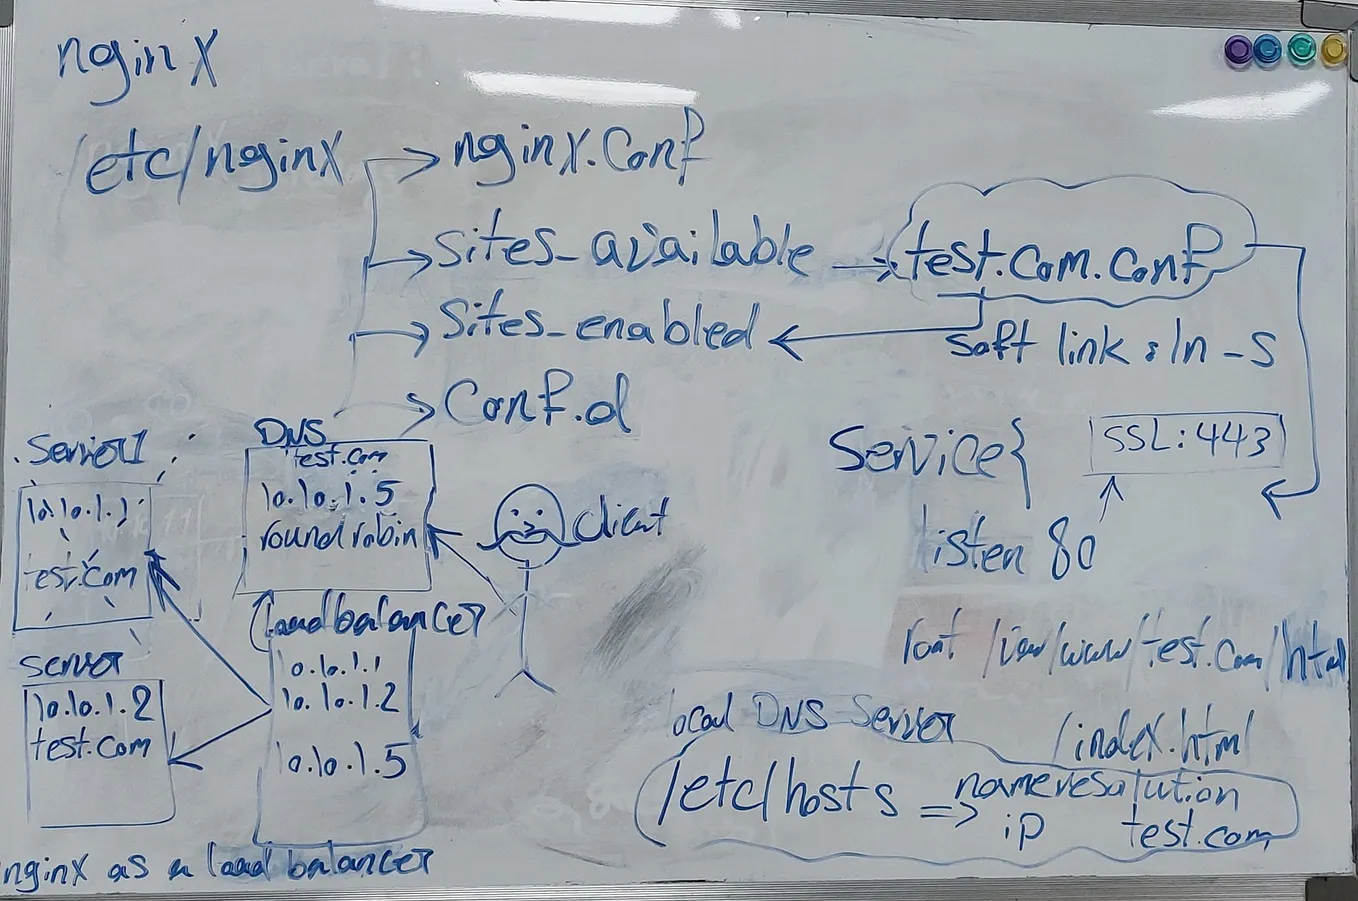 nginx
/etc/nginx
nginx.conf
sites_available
test.com.conf
sites_enabled
soft link : ln -s
conf.d
Service{
SSL:443
listen 80
root /var/www/test.com/html
/index.html
local DNS Server
/etc/hosts => name resolution
ip test.com
DNS
test.com
10.10.1.5
round robin
client
Server1
10.10.1.1
test.com
server
10.10.1.2
test.com
Load balancer
10.10.1.1
10.10.1.2
10.10.1.5
nginx as a load balancer